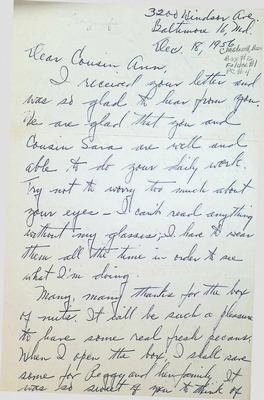 3200 Windsor Ave,
Baltimore 16, Md.
Dec. 18, 1956
Box #12
Folder #1
Dear Cousin Ann,
I received your letter and
was so glad to hear from you.
We are glad that you and
Cousin Sara are well and
able to do your daily work.
Try not to worry too much about
your eyes - I can't read anything
without my glasses; I have to wear
them all the time in order to see
what I'm doing.
Many, many thanks for the box
of nuts. It'll be such a pleasure
to have some real fresh pecans.
When I open the box, I shall save
some for Peggy and her family. It
was so sweet of you to think of